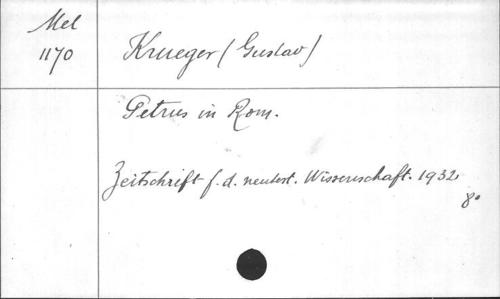 Mel
1170
Krueger (Gustav)
Petrus in Rom.
Zeitschrift f. d. neutest. Wissenschaft. 1932.
8°